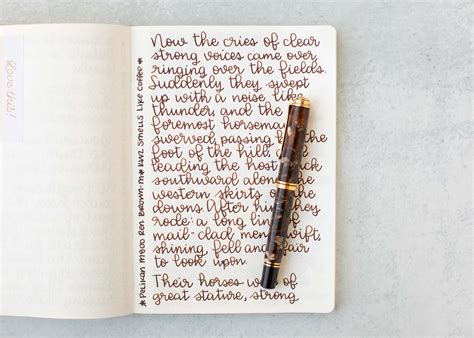 Love this!
*PELIKAN M800 REN. BROWN-M* KWZ SMELLS LIKE COFFEE*
Now the cries of clear
strong voices came over
ringing over the fields.
Suddenly they swept
up with a noise like
thunder, and the
foremost horseman
swerved, passing the
foot of the hill,
leading the host back
southward along the
western skirts the
downs. After him they
rode: a long line of
mail-clad men, swift,
shining, fell and fair
to look upon.
Their horses were of
great stature, strong